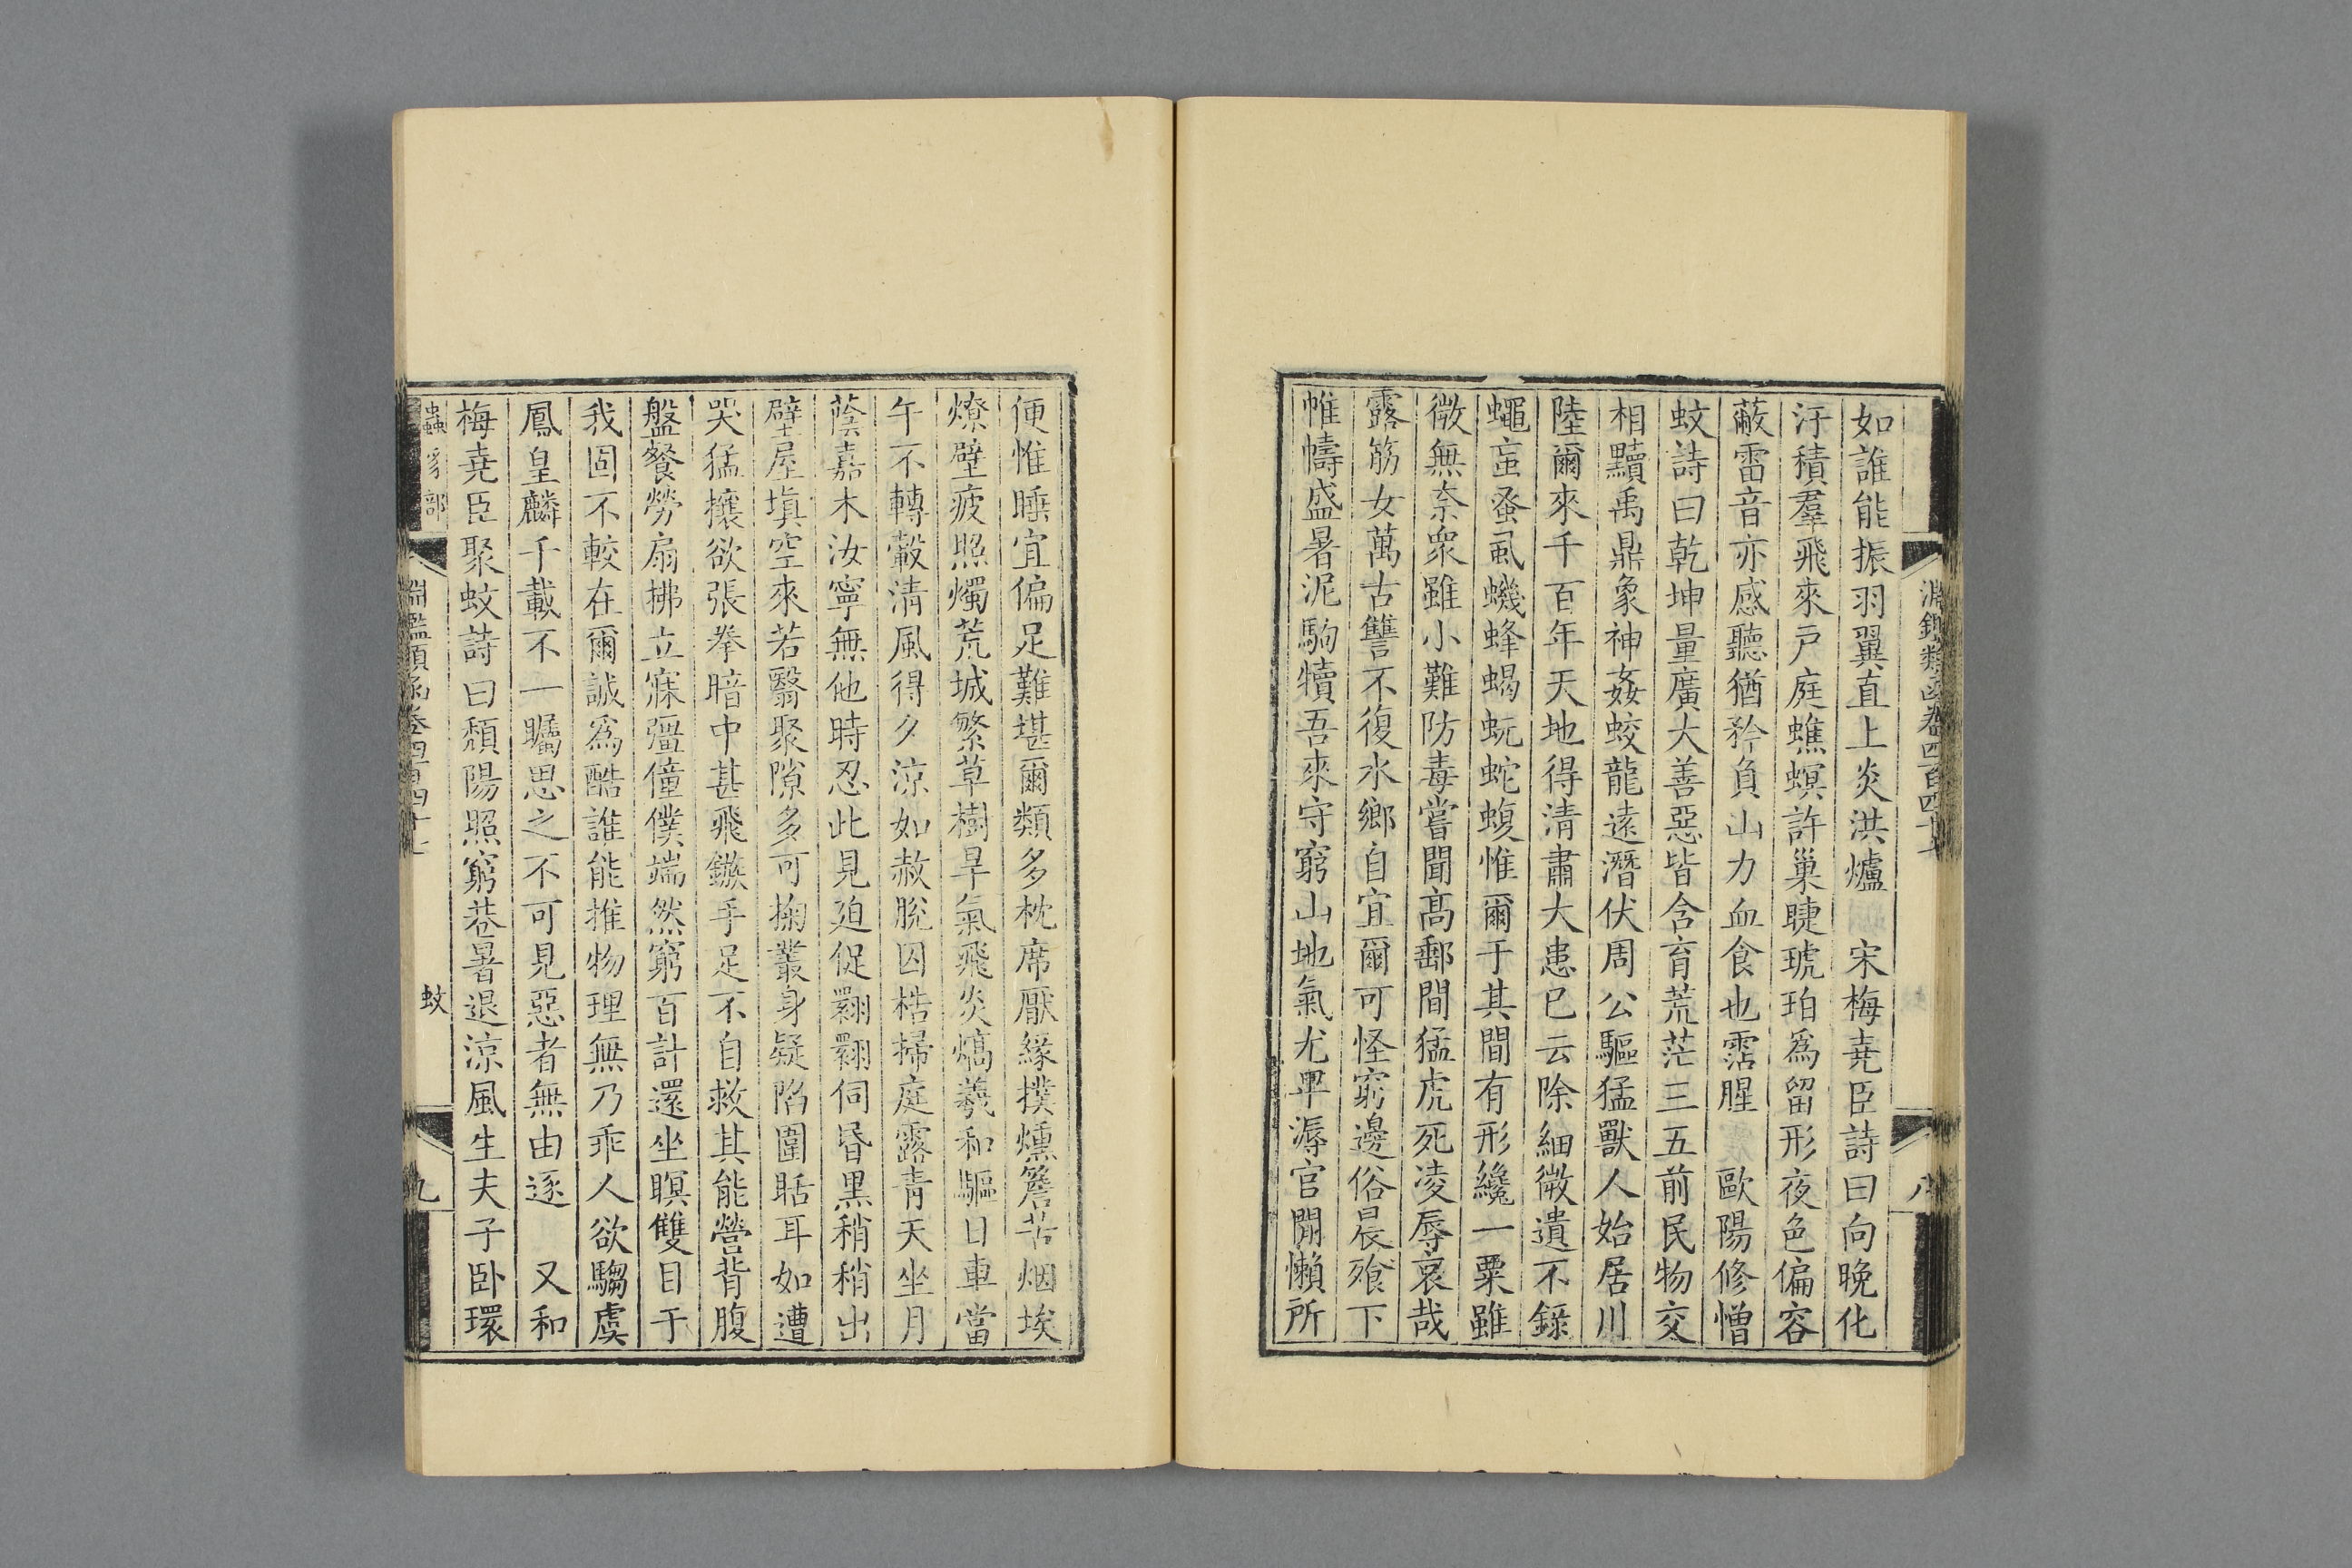 淵鑑類函卷四百四十七
八
如誰能振羽翼直上炎洪爐　宋梅堯臣詩曰向晚化
汙積羣飛來戸庭蟭螟許巢睫琥珀爲留形夜色偏容
蔽雷音亦感聽猶矜負山力血食也霑腥　歐陽修憎
蚊詩曰乾坤量廣大善惡皆含育荒茫三五前民物交
相黷禹鼎象神姦蛟龍遠潛伏周公驅猛獸人始居川
陸爾來千百年天地得清肅大患已云除細微遺不錄
蠅䖟蚤虱蟣蜂蝎蚖蛇蝮惟爾于其間有形纔一粟雖
微無奈衆雖小難防毒嘗聞高郵間猛虎死凌辱哀哉
露筋女萬古讐不復水鄉自宜爾可怪窮邊俗晨飱下
帷幬盛暑泥駒犢吾來守窮山地氣尤卑溽官閒懶所
便惟睡宜偏足難堪爾類多枕席厭緣撲燻簷苦烟埃
燎壁疲照燭荒城繁草樹旱氣飛炎熇羲和驅日車當
午不轉轂清風得夕涼如赦脫囚梏掃庭露青天坐月
蔭嘉木汝寧無他時忍此見迫促翾翾伺昏黑稍稍出
壁屋塡空來若翳聚隙多可掬叢身疑陷圍聒耳如遭
哭猛攘欲張拳暗中甚飛鏃手足不自救其能營背腹
盤餐勞扇拂立寐彊僮僕端然窮百計還坐瞑雙目于
我固不較在爾誠爲酷誰能推物理無乃乖人欲騶虞
鳳皇麟千載不一矚思之不可見惡者無由逐　又和
梅堯臣聚蚊詩曰頹陽照窮巷暑退涼風生夫子臥環
蟲豸部
淵鑑類函卷四百四十七
蚊
九